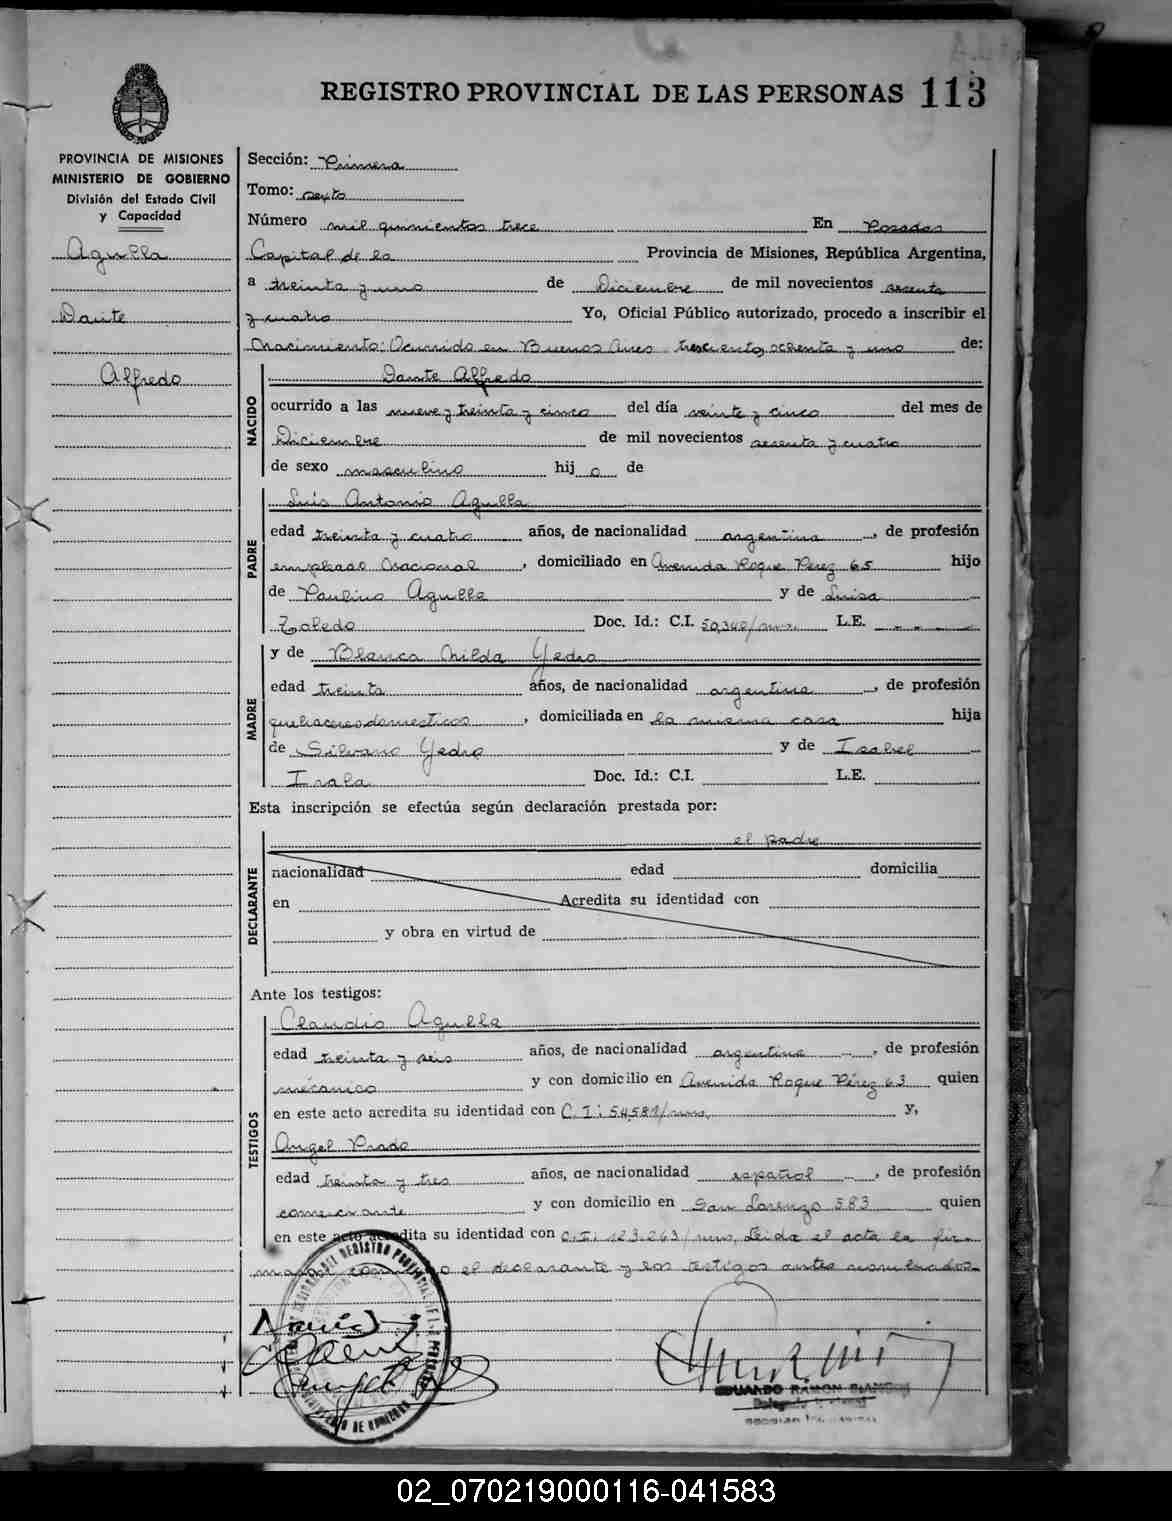 REGISTRO PROVINCIAL DE LAS PERSONAS 113
PROVINCIA DE MISIONES
MINISTERIO DE GOBIERNO
División del Estado Civil
y Capacidad
Agulla
Dante
Alfredo
Sección: Primera
Tomo: sexto
Número mil quinientos trece En Posadas
Capital de la Provincia de Misiones, República Argentina,
a treinta y uno de Diciembre de mil novecientos sesenta
y cuatro Yo, Oficial Público autorizado, procedo a inscribir el
Nacimiento: Ocurrido en Buenos Aires trescientos ochenta y uno de:
NACIDO
Dante Alfredo
ocurrido a las nueve y treinta y cinco del día veinte y cinco del mes de
Diciembre de mil novecientos sesenta y cuatro
de sexo masculino hij o de
PADRE
Luis Antonio Agulla
edad treinta y cuatro años, de nacionalidad argentina, de profesión
empleado Nacional, domiciliado en Avenida Roque Perez 65 hijo
de Paulino Agulla y de Luisa
Toledo Doc. Id.: C.I. 50.340/mns. L.E.
MADRE
y de Blanca Nilda Yedro
edad treinta años, de nacionalidad argentina, de profesión
quehaceres domesticos, domiciliada en la misma casa hija
de Silvano Yedro y de Isabel
Irala Doc. Id.: C.I. L.E.
Esta inscripción se efectúa según declaración prestada por:
DECLARANTE
el padre
nacionalidad edad domicilia
en Acredita su identidad con
y obra en virtud de
Ante los testigos:
TESTIGOS
Claudio Agulla
edad treinta y seis años, de nacionalidad argentina, de profesión
mécanico y con domicilio en Avenida Roque Pérez 63 quien
en este acto acredita su identidad con C.I: 54.581/mns, y,
Angel Prado
edad treinta y tres años, de nacionalidad español, de profesión
comerciante y con domicilio en San Lorenzo 583 quien
en este acto acredita su identidad con C.I. 123.263/mns, Leida el acta la fir-
man conmigo el declarante y los testigos antes nombrados
EDUARDO RAMON BIANCHI
02_070219000116-041583